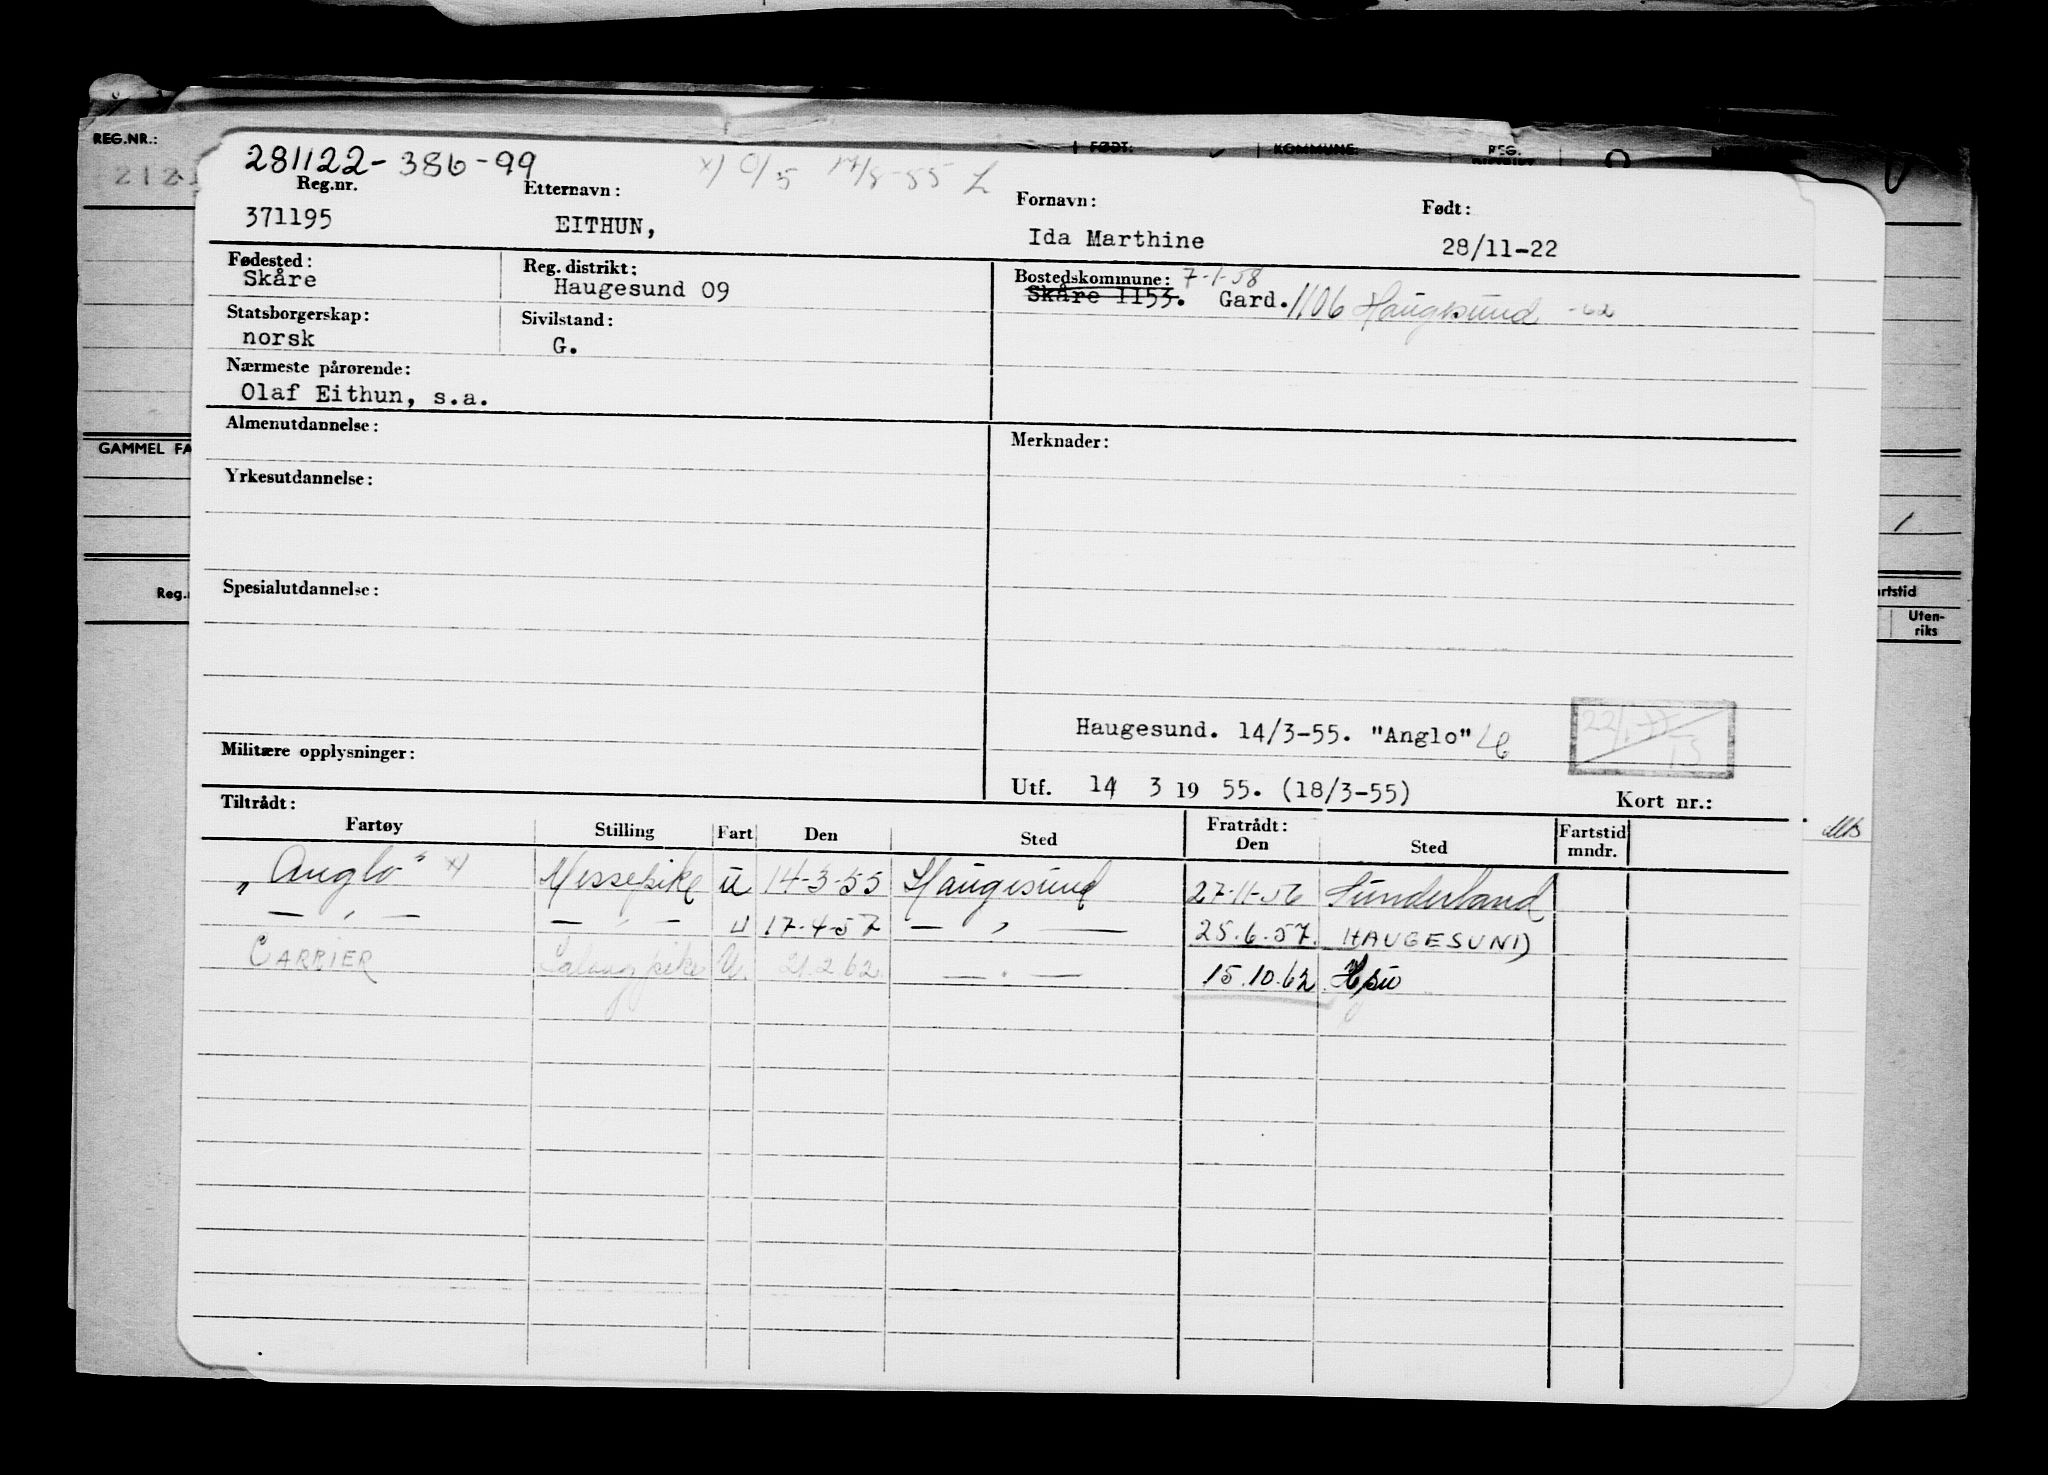 REG.NR.: FØDT: KOMMUNE: REG.
281122-386-99
Reg.nr. Etternavn: Fornavn: Født:
371195 EITHUN, Ida Marthine 28/11-22
Fødested: Reg. distrikt: Bostedskommune: 7-1-58
Skåre Haugesund 09 Skåre 1153. Gard. 1106 Haugesund -62
Statsborgerskap: Sivilstand:
norsk G.
Nærmeste pårørende:
Olaf Eithun, s.a.
Almenutdannelse: Merknader:
GAMMEL FA
Yrkesutdannelse:
Spesialutdannelse:
Reg. rtstid
Uten-
riks
Haugesund. 14/3-55. "Anglo"
Militære opplysninger:
Utf. 14 3 19 55. (18/3-55) Kort nr.:
Tiltrådt: Fratrådt:
Fartøy Stilling Fart Den Sted Den Sted Fartstid mndr.
„Anglo" x) Messepike u 14-3-55 Haugesund 27-11-56 Sunderland
— " — — " — u 17-4-57 — " — 25.6.57. HAUGESUND
CARRIER Salongpike U. 21.2.62. — " — 15.10.62 Hgsu